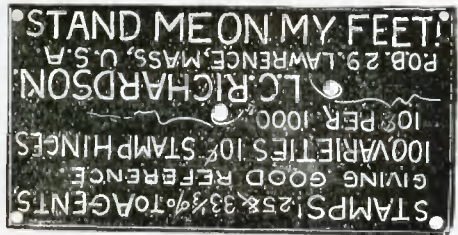 STAND ME ON MY FEET!
STAMPS! 25 & 33⅓% TO AGENTS,
GIVING GOOD REFERENCE.
100 VARIETIES 10¢ STAMP HINGES
10¢ PER 1000.
L.C. RICHARDSON.
P.O.B. 29. LAWRENCE, MASS, U.S.A.